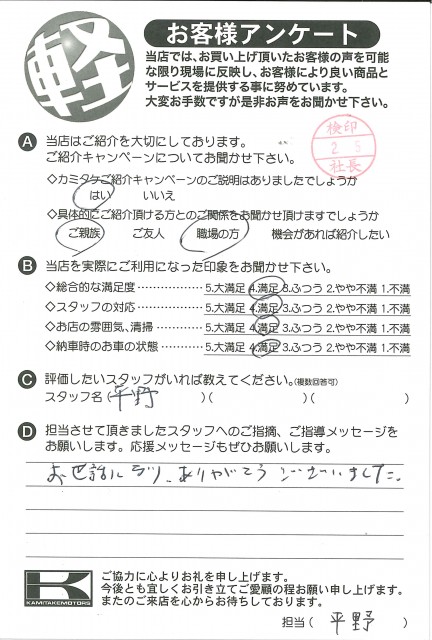 軽
お客様アンケート
当店では、お買い上げ頂いたお客様の声を可能
な限り現場に反映し、お客様により良い商品と
サービスを提供する事に努めています。
大変お手数ですが是非お声をお聞かせ下さい。
検印
2 5
社長
A 当店はご紹介を大切にしております。
ご紹介キャンペーンについてお聞かせ下さい。
◇カミタケご紹介キャンペーンのご説明はありましたでしょうか
はい いいえ
◇具体的にご紹介頂ける方とのご関係をお聞かせ頂けますでしょうか
ご親族 ご友人 職場の方 機会があれば紹介したい
B 当店を実際にご利用になった印象をお聞かせ下さい。
◇総合的な満足度……………5.大満足 4.満足 3.ふつう 2.やや不満 1.不満
◇スタッフの対応……………5.大満足 4.満足 3.ふつう 2.やや不満 1.不満
◇お店の雰囲気、清掃…………5.大満足 4.満足 3.ふつう 2.やや不満 1.不満
◇納車時のお車の状態…………5.大満足 4.満足 3.ふつう 2.やや不満 1.不満
C 評価したいスタッフがいれば教えてください。(複数回答可)
スタッフ名(平野 )( )( )
D 担当させて頂きましたスタッフへのご指摘、ご指導メッセージを
お願いします。応援メッセージもぜひお願いします。
お世話になり、ありがとうございました。
K
KAMITAKEMOTORS
ご協力に心よりお礼を申し上げます。
今後とも宜しくお引き立てご愛顧の程お願い申し上げます。
またのご来店を心からお待ちしております。
担当( 平野 )